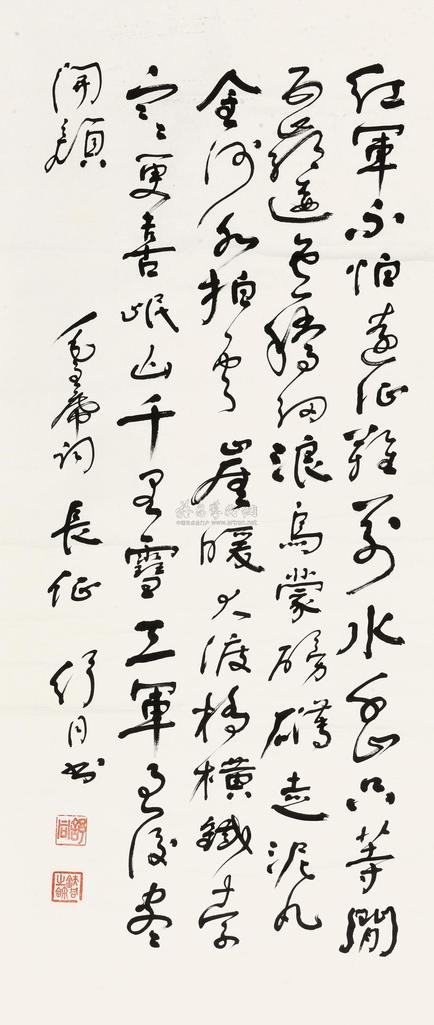 紅軍不怕遠征難萬水千山只等閒
五嶺逶迤騰細浪烏蒙磅礴走泥丸
金沙水拍雲崖暖大渡橋橫鐵索
寒更喜岷山千里雪三軍過後盡
開顏 毛主席詞 長征 舒同書
舒同
www.artron.net